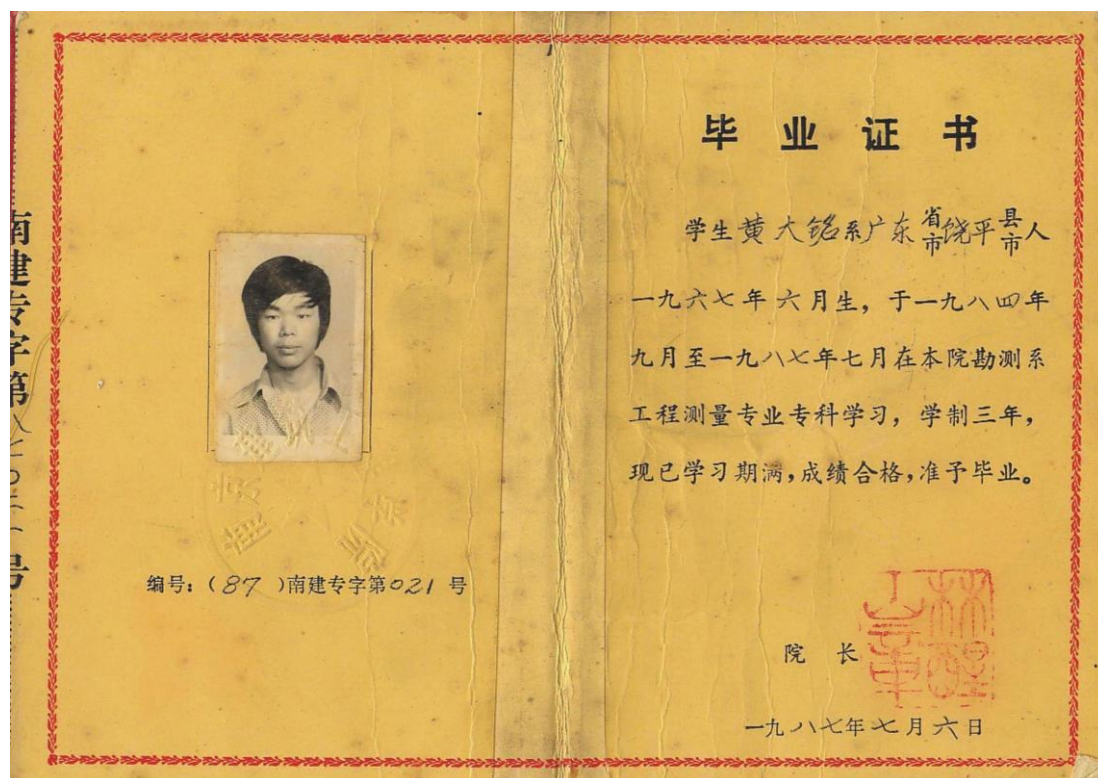 南建专字第
号
编号：(87)南建专字第021号
毕业证书
学生黄大铭系广东省市饶平县市人
一九六七年六月生，于一九八四年
九月至一九八七年七月在本院勘测系
工程测量专业专科学习，学制三年，
现已学习期满，成绩合格，准予毕业。
院长
一九八七年七月六日